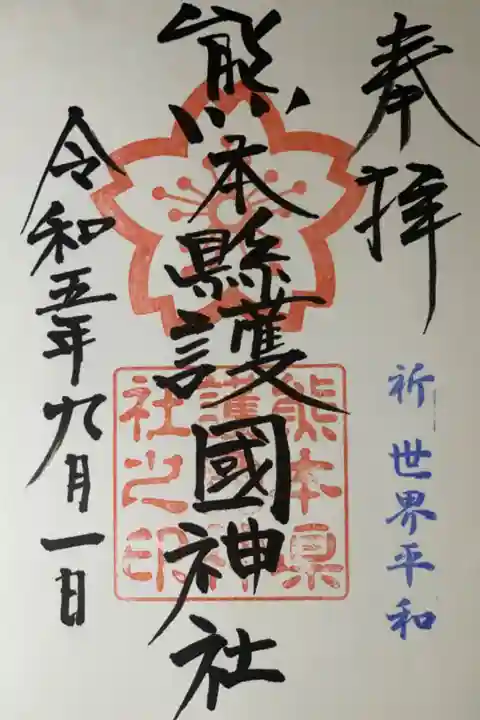 奉拝
祈 世界平和
熊本縣護國神社
熊本県
護国神
社之印
令和五年九月一日